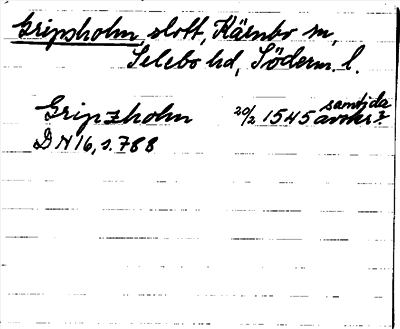 Gripsholm slott, Kärnbo sn,
Selebo hd, Söderm. l.
Gripzholm 20/2 1545 samtida avskr.?
DN 16, s. 788